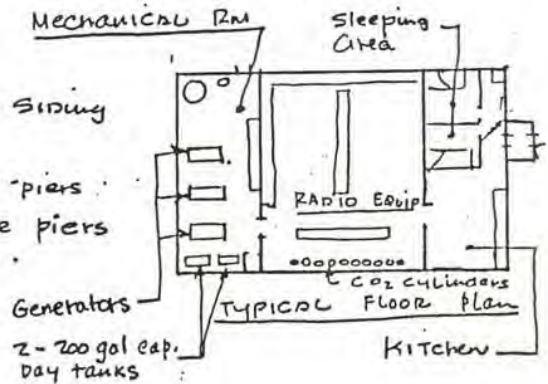 Mechanical Rm
Sleeping
Area
Siding
piers
piers
RADIO Equip
CO2 Cylinders
Generators
TYPICAL FLOOR Plan
2-200 gal cap.
Day tanks
KITCHEN